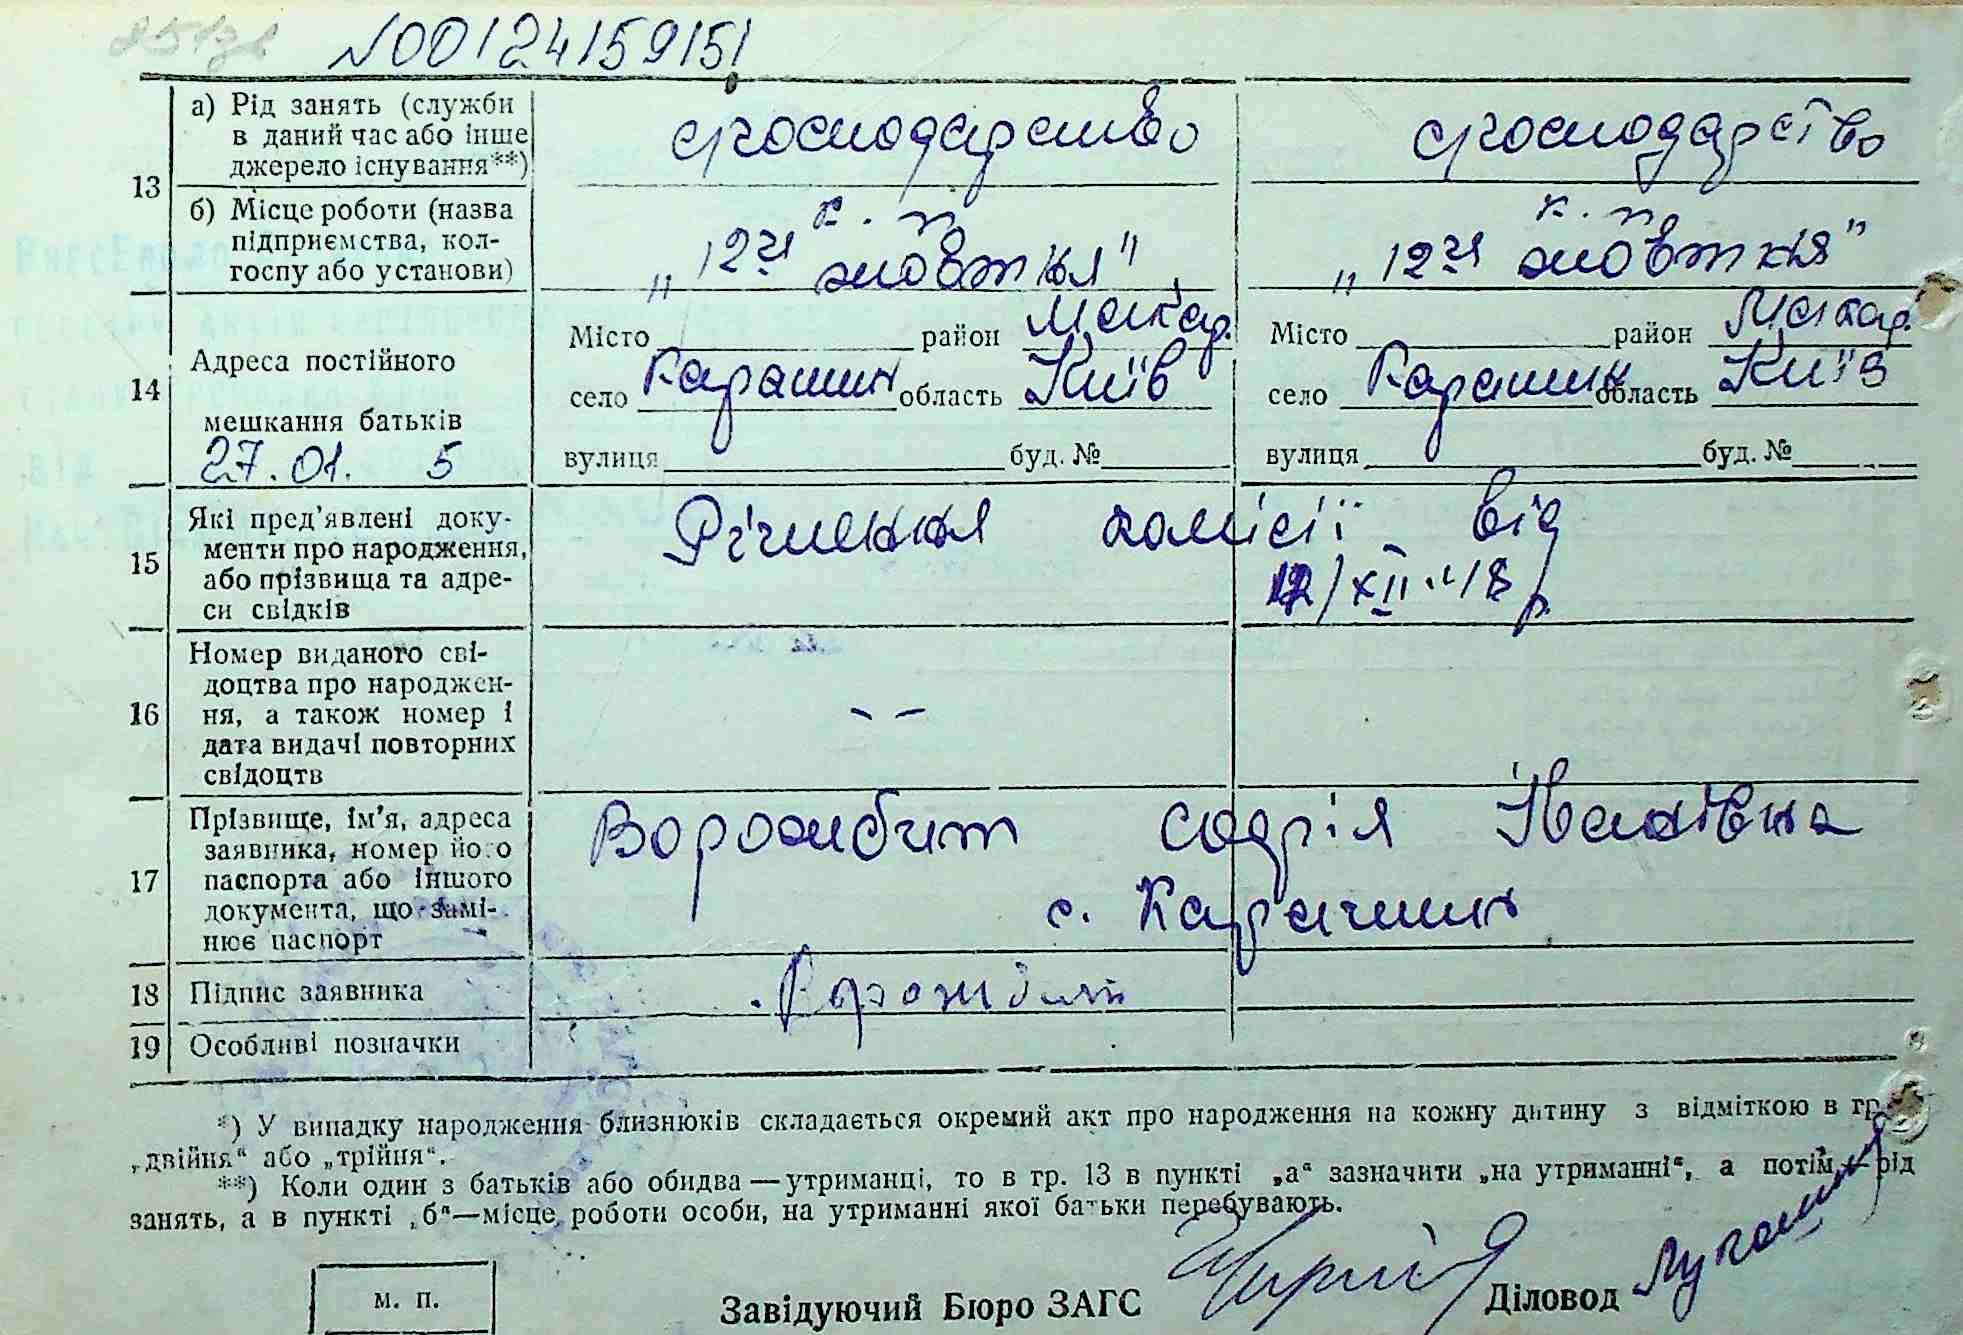 N00124159151
13
а) Рід занять (служби
в даний час або інше
джерело існування**)
сг господарство
господарство
б) Місце роботи (назва
підприємства, кол-
госпу або установи)
к. г.
„12 жовтня"
„12 жовтня"
14
Адреса постійного
мешкання батьків
27.01. 5
Місто район Макар.
село Карашин область Київ
вулиця буд. №
Місто район Макар.
село Карашин область Київ
вулиця буд. №
15
Які пред'явлені доку-
менти про народження,
або прізвища та адре-
си свідків
Рішення комісії від
12/XII 48 р.
16
Номер виданого сві-
доцтва про народжен-
ня, а також номер і
дата видачі повторних
свідоцтв
– –
17
Прізвище, ім'я, адреса
заявника, номер його
паспорта або іншого
документа, що замі-
нює паспорт
Ворожбит Іванівна
с. Карашин
18
Підпис заявника
Ворожбит
19
Особливі позначки
*) У випадку народження близнюків складається окремий акт про народження на кожну дитину з відміткою в гр.
„двійня“ або „трійня“.
**) Коли один з батьків або обидва—утриманці, то в гр. 13 в пункті „а“ зазначити „на утриманні“, а потім—рід
занять, а в пункті „б“—місце роботи особи, на утриманні якої батьки перебувають.
м. п.
Завідуючий Бюро ЗАГС
Діловод